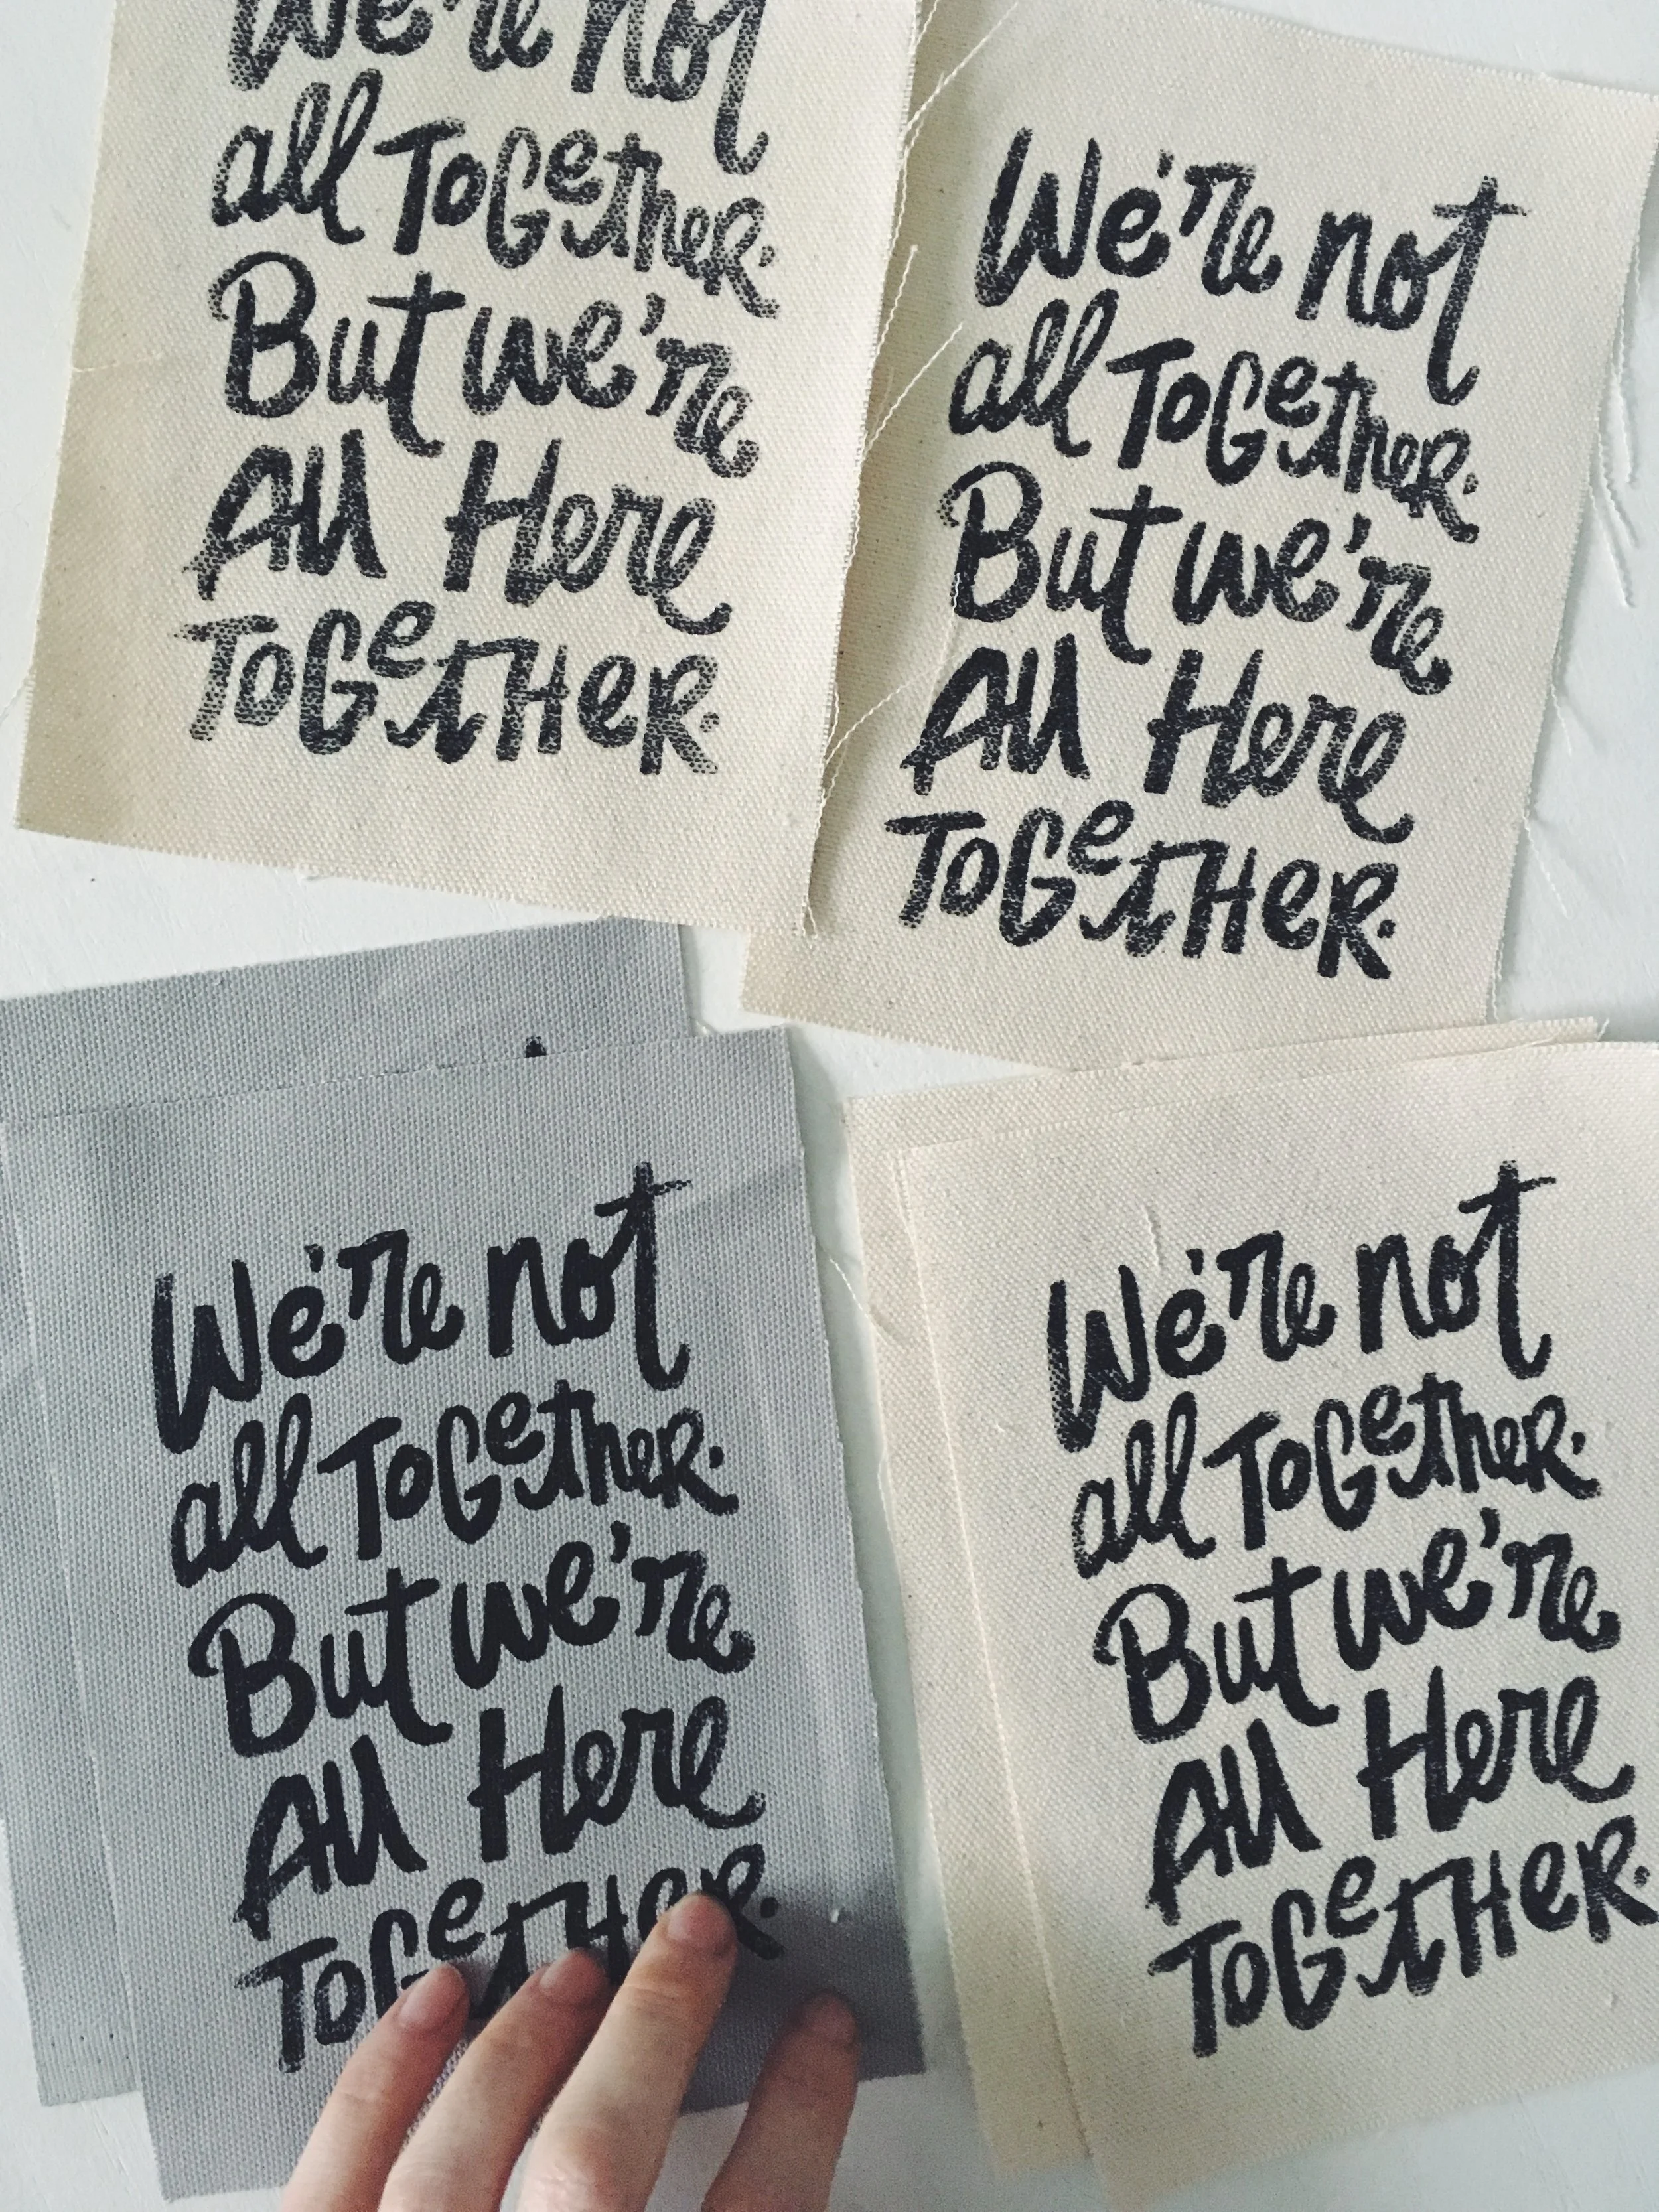 We're not
all ToGether.
But we're
All Here
ToGeTHeR.
We're not
all ToGether.
But we're
All Here
ToGeTHeR.
We're not
all ToGether.
But we're
All Here
ToGeTHeR.
We're not
all ToGether.
But we're
All Here
ToGeTHeR.